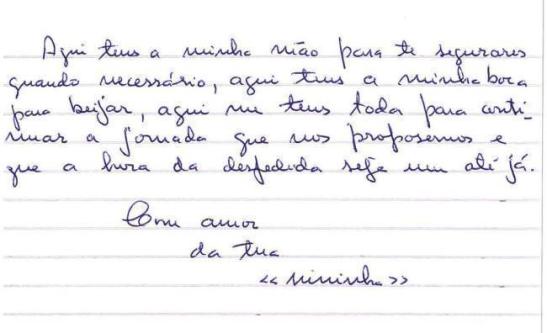 Aqui tens a minha mão para te segurares
quando necessário, aqui tens a minha boca
para beijar, aqui me tens toda para conti-
nuar a jornada que nos propusemos e
que a hora da despedida seja um até já.
Com amor
da tua
<< Mininha >>